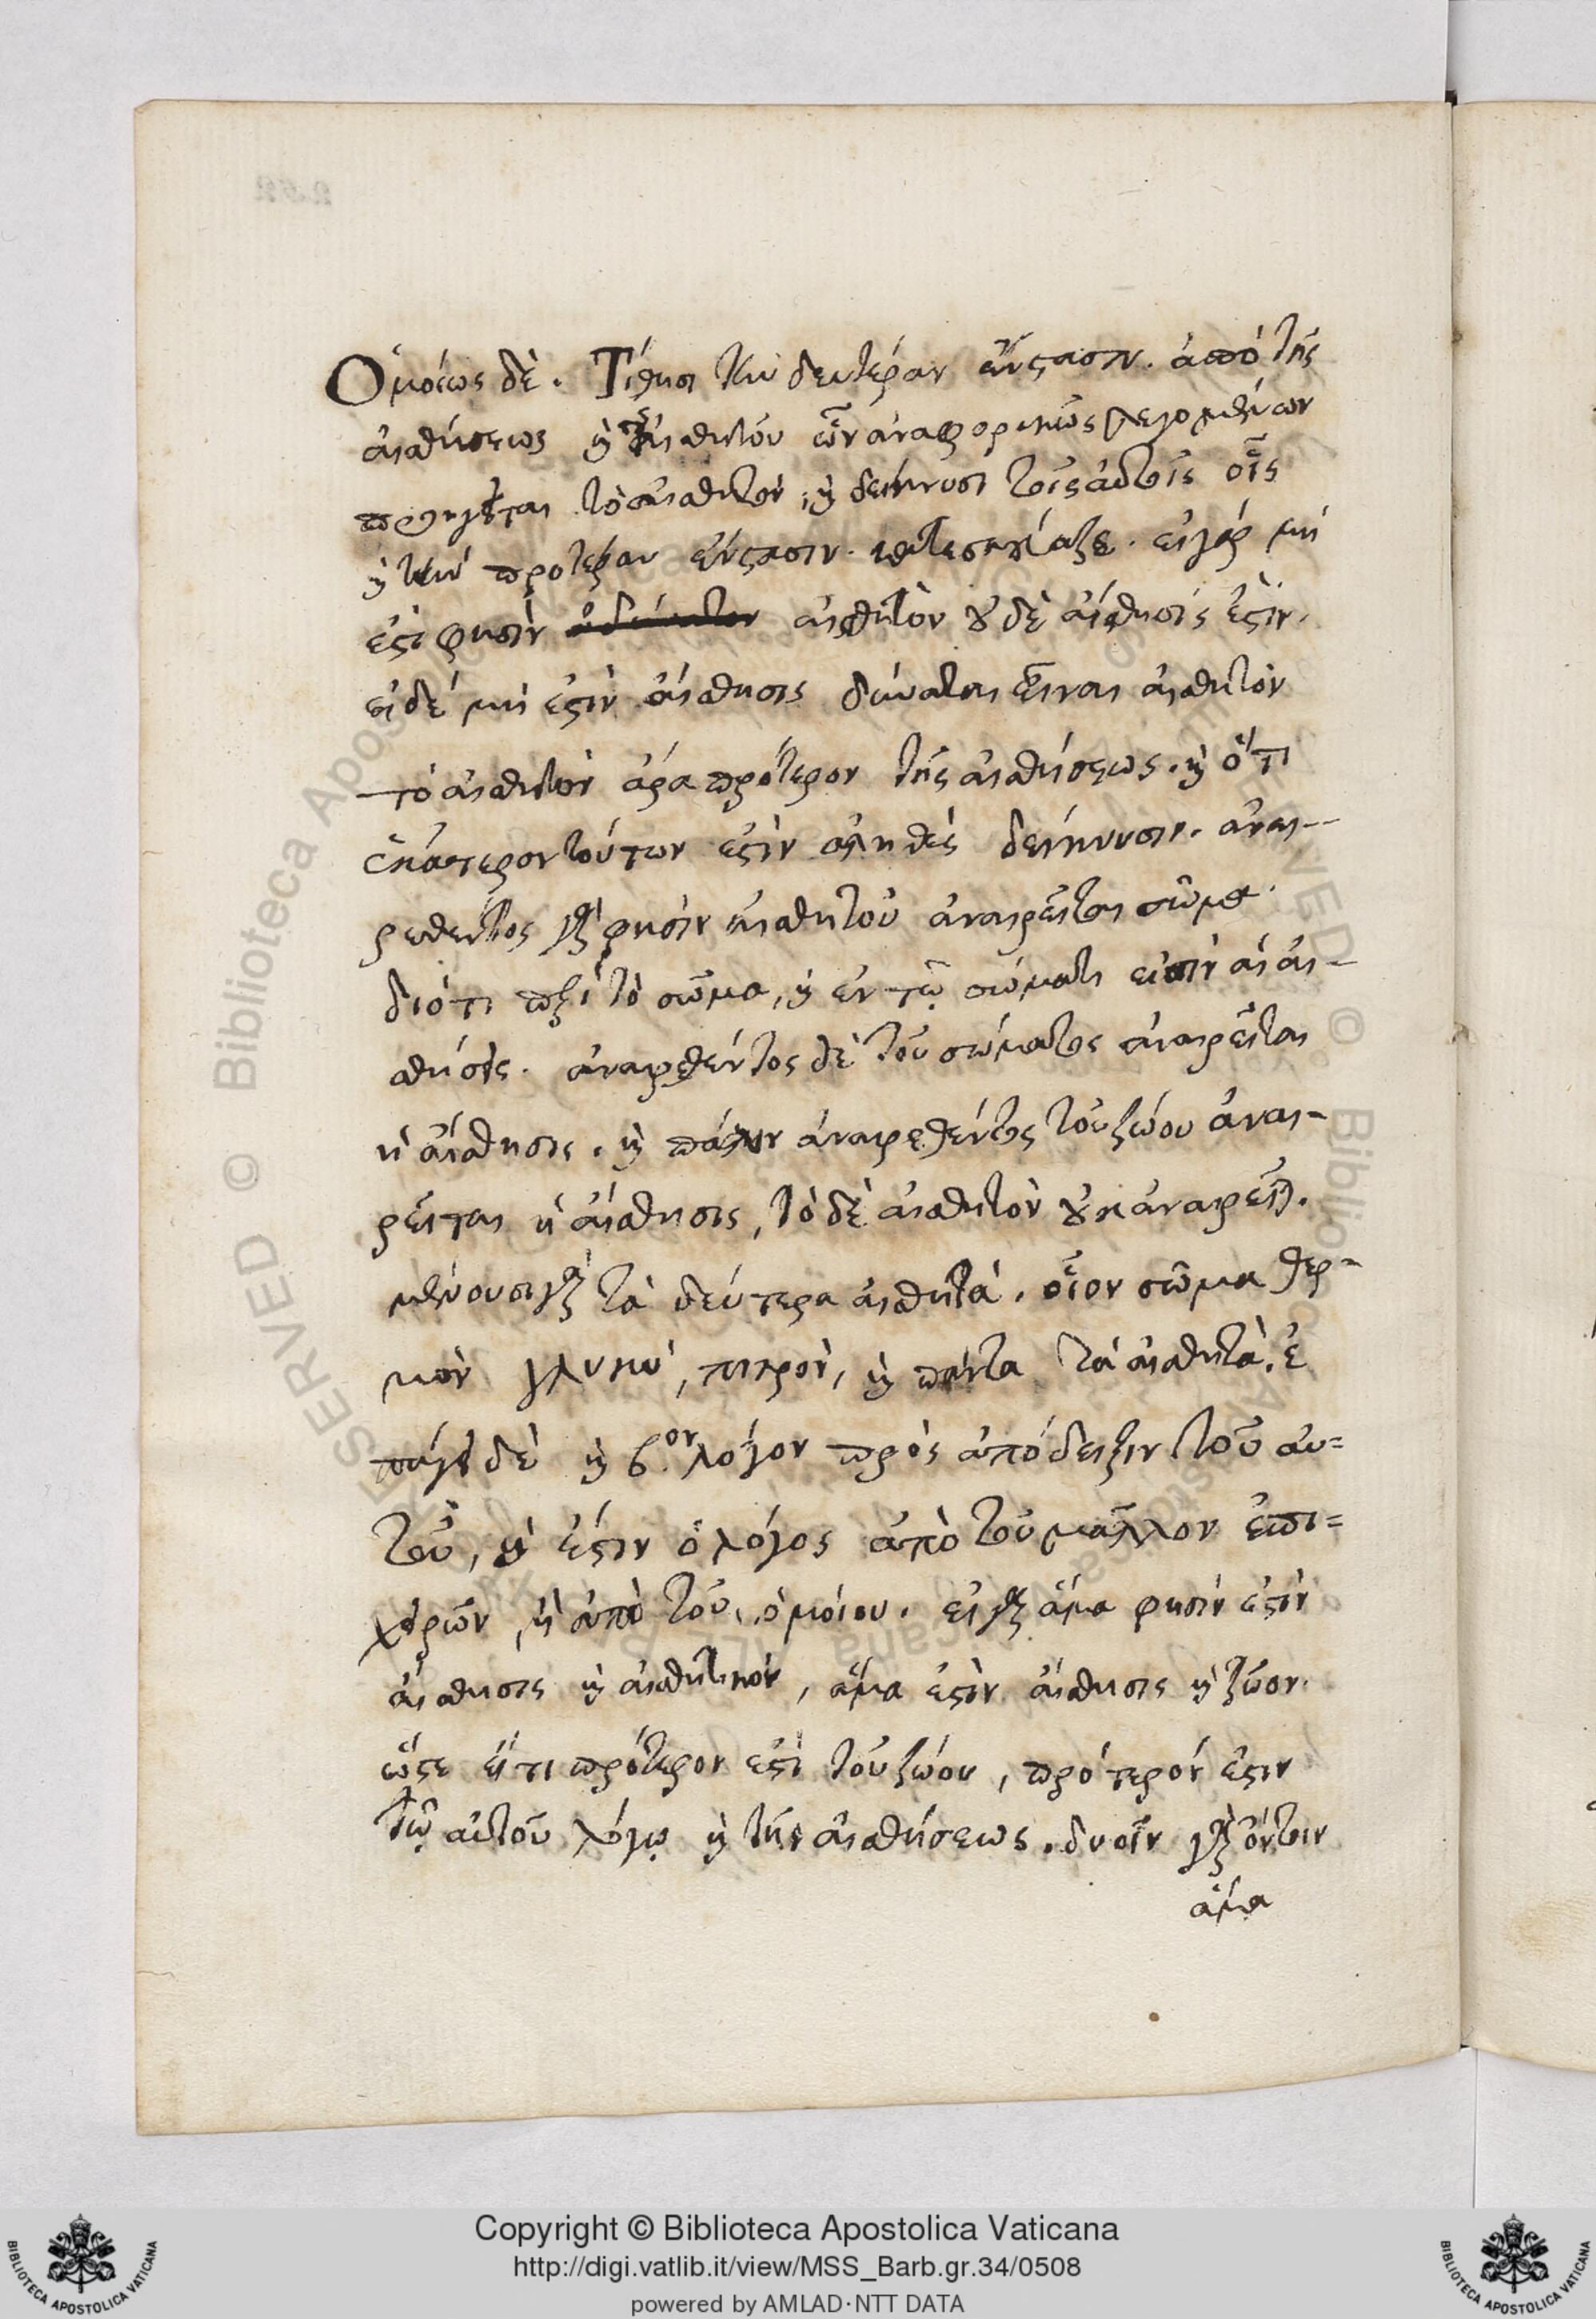 Ὁμοίως δὲ. Τίθησι τὴν δευτέραν ἔνστασιν. ἀπὸ τῆς
αἰσθήσεως καὶ τοῦ αἰσθητοῦ ὧν ἀναφορικῶς λεγομένων
προηγεῖται τὸ αἰσθητόν, καὶ δείκνυσι τοῖς αὐτοῖς οἷς
καὶ τὴν προτέραν ἔνστασιν. κατεσκεύαζε. εἰ γάρ μὴ
ἐστί φησὶν αἰσθητὸν οὐδὲ αἴσθησίς ἐστιν.
εἰ δὲ μὴ ἐστὶν αἴσθησις δύναται εἶναι αἰσθητὸν
τὸ αἰσθητὸν ἄρα πρότερον τῆς αἰσθήσεως. καὶ ὅτι
ἑκάτερον τούτων ἐστὶν ἀληθὲς δείκνυσιν. ἀναι--
ρεθέντος γὰρ φησὶν αἰσθητοῦ ἀναιρεῖται σῶμα.
διότι περὶ τὸ σῶμα, καὶ ἐν τῷ σώματι εἰσὶν αἱ αἰ-
σθήσεις. ἀναιρεθέντος δὲ τοῦ σώματος ἀναιρεῖται
ἡ αἴσθησις. καὶ πάλιν ἀναιρεθέντος τοῦ ζώου ἀναι-
ρεῖται ἡ αἴσθησις, τὸ δὲ αἰσθητὸν οὐκ ἀναιρεῖται.
μένουσι γὰρ τὰ δεύτερα αἰσθητά. οἷον σῶμα θερ-
μὸν γλυκὺ, πικρὸν, καὶ πάντα τὰ αἰσθητὰ. ἐ
πάγει δὲ καὶ β.ον λόγον πρὸς ἀπόδειξιν τοῦ αυ=
τοῦ, καὶ ἔστιν ὁ λόγος ἀπὸ τοῦ μᾶλλον ἐπι=
χειρῶν, ἢ ἀπὸ τοῦ ὁμοίου. εἰ γὰρ ἅμα φησὶν ἐστὶν
αἴσθησις καὶ αἰσθητικὸν, ἅμα ἐστὶν αἴσθησις καὶ ζῶον.
ὥστε εἴ τι πρότερον ἐστὶ τοῦ ζώου, πρότερόν ἐστιν
τῷ αὐτοῦ λόγῳ καὶ τῆς αἰσθήσεως. δυοῖν γὰρ ὄντοιν
ἅμα
Copyright © Biblioteca Apostolica Vaticana
http://digi.vatlib.it/view/MSS_Barb.gr.34/0508
powered by AMLAD·NTT DATA